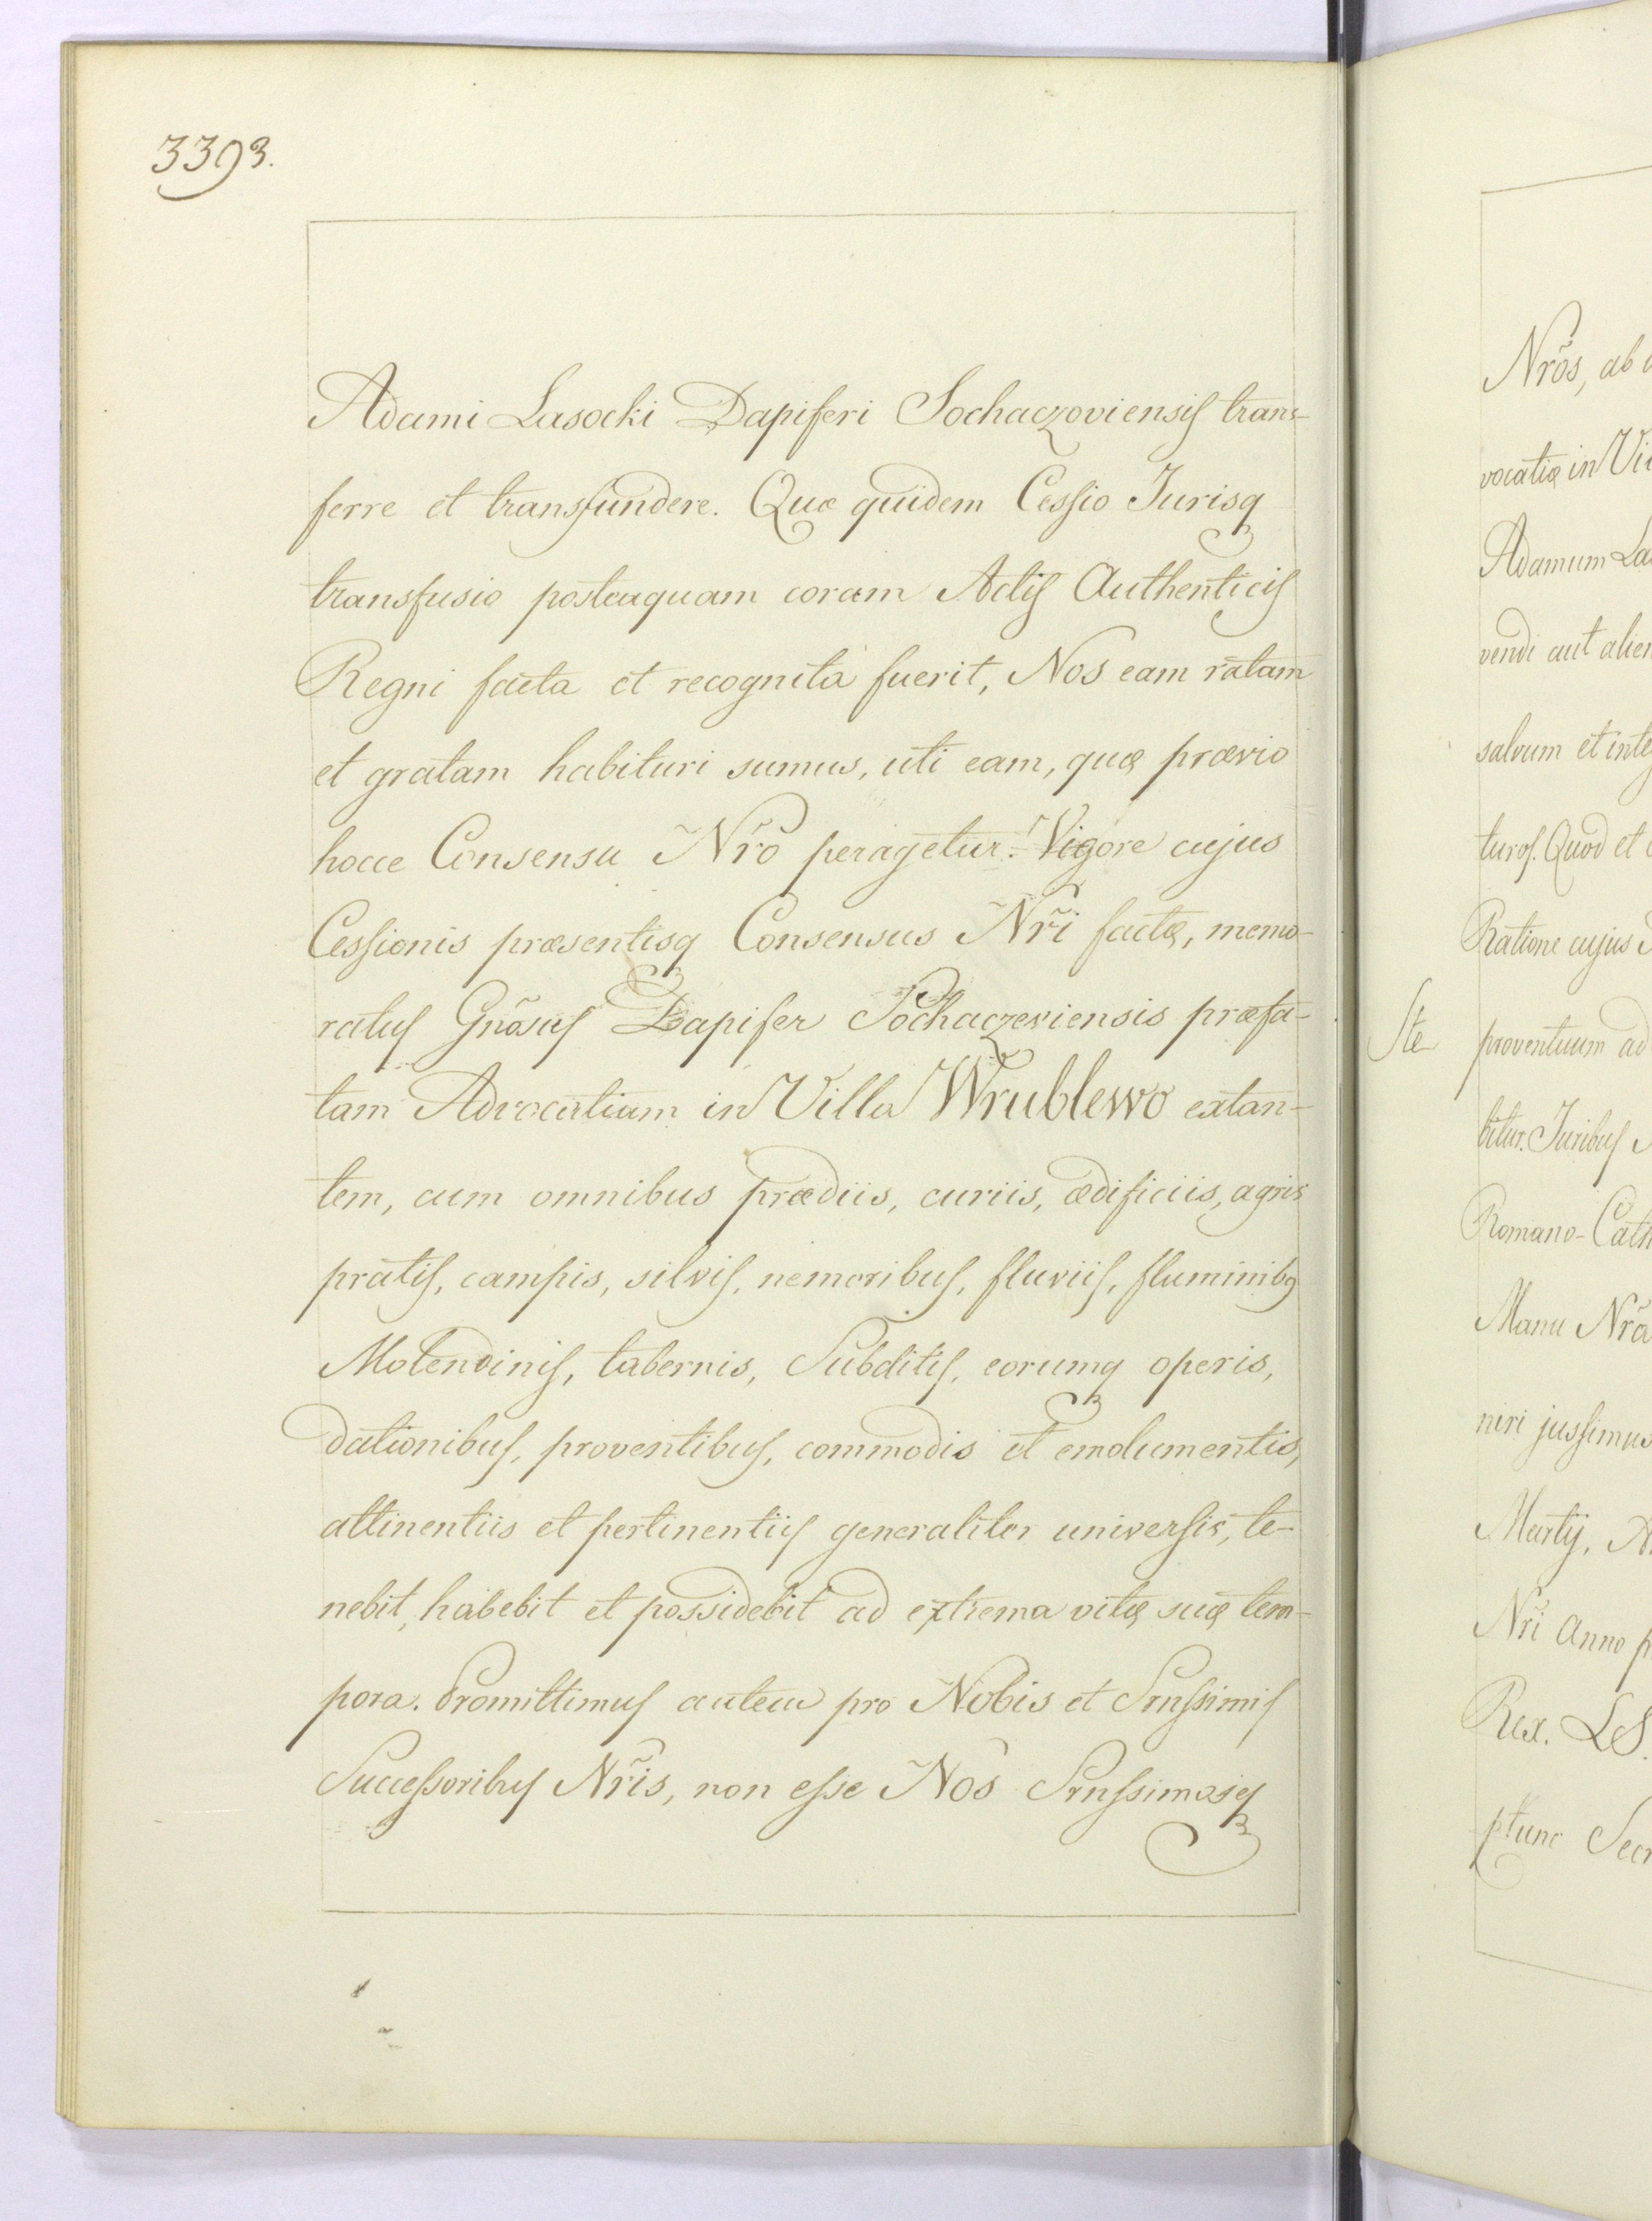 3393.
Adami Lasocki Dapiferi Sochaczoviensis trans-
ferre et transfundere. Quæ quidem Cessio Jurisq
transfusio posteaquam coram Actis Authenticis
Regni facta et recognita fuerit, Nos eam ratam
et gratam habituri sumus, uti eam, quæ prævio
hocce Consensu Nrõ peragetur. Vigore cujus
Cessionis præsentisq Consensus Nrĩ factæ, memo-
ratus Gnõsus Dapifer Sochaczeviensis præfa-
tam Advocatiam in Villa Wrublewo extan-
tem, cum omnibus prædiis, curiis, ædificiis, agris
pratis, campis, silvis, nemoribus, fluviis, fluminibq
Molendinis, tabernis, Subditis, eorumq operis,
dationibus, proventibus, commodis et emolumentis,
attinentiis et pertinentiis generaliter universis, te-
nebit, habebit et possidebit ad extrema vitæ suæ tem-
pora. Promittimus autem pro Nobis et Srnssimis
Successoribus Nrĩs, non esse Nos Srnssimosq
Nrõs, ab
vocatiæ in Vi
Adamum La
vendi aut alien
salvum et inte
turos. Quod et
Ratione cujus
Ste
proventuum ad
bitur. Juribus
Romano-Cath
Manu Nrã
niri jussimus
Martij,
Nrĩ Anno p
Rex. LS.
ptunc Secr